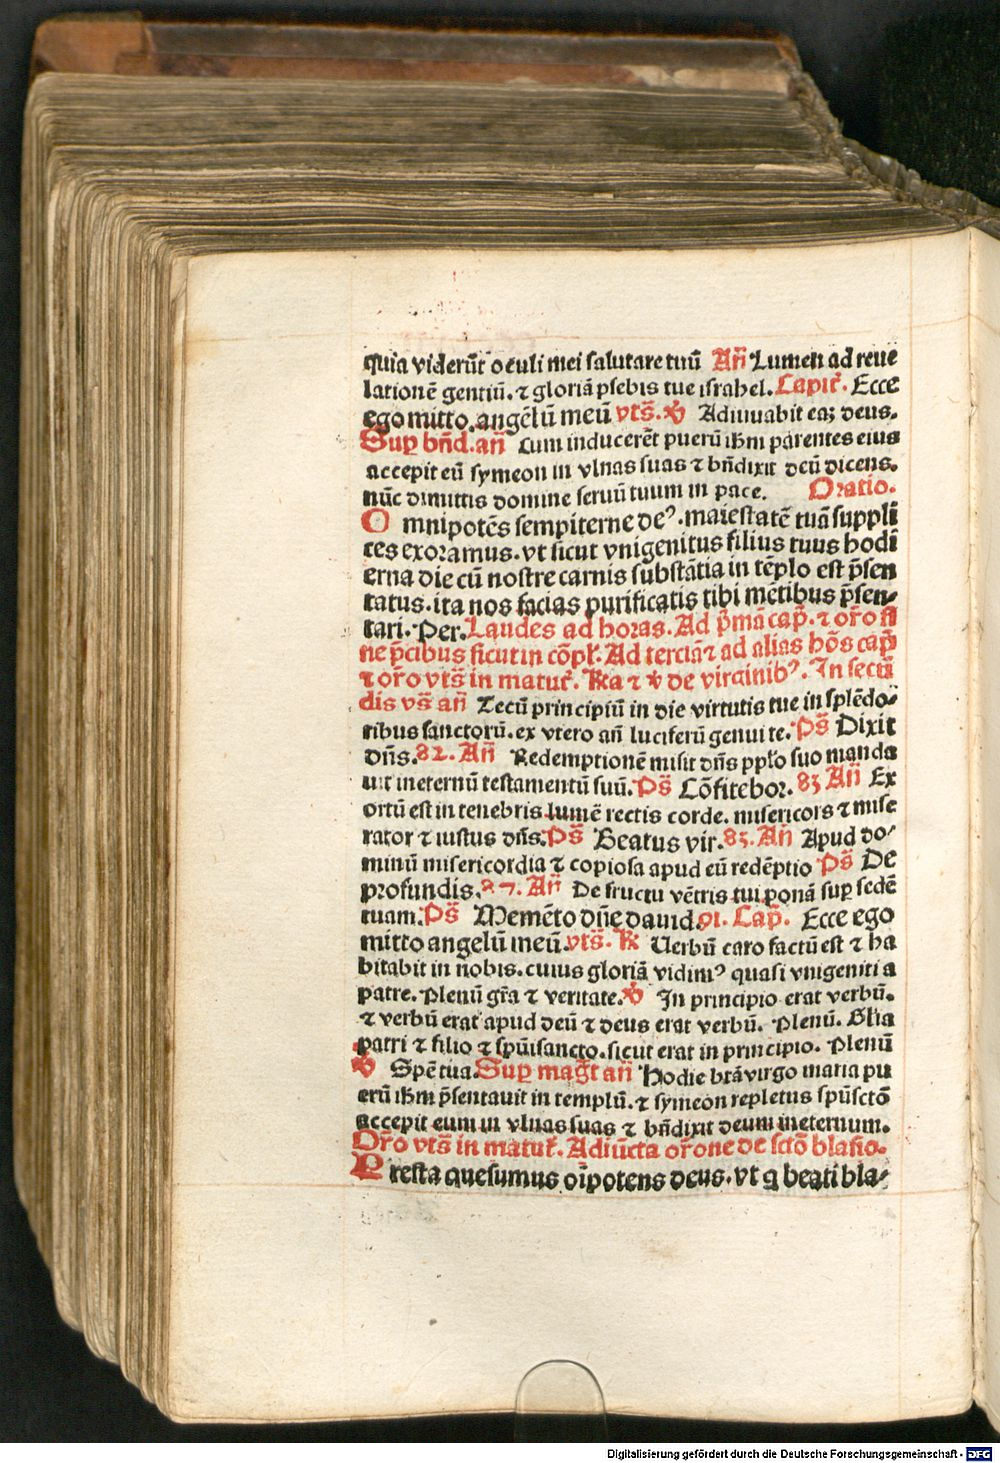 quia viderūt oculi mei salutare tuū Añ Lumen ad reue
lationē gentiū. ⁊ gloriā plebis tue israhel. Capit̄. Ecce
ego mitto angelū meū vts̄. ℣ Adiuuabit eaꝫ deus.
Suꝑ bn̄d. añ Cum inducerēt puerū ihm parentes eius
accepit eū symeon in vlnas suas ⁊ bn̄dixit deū dicens.
nūc dimittis domine seruū tuum in pace. Oratio.
Omnipotēs sempiterne deꝰ. maiestatē tuā suppli
ces exoramus. vt sicut vnigenitus filius tuus hodi
erna die cū nostre carnis substātia in tēplo est p̄sen
tatus. ita nos facias purificatis tibi mētibus p̄sen⸗
tari. Per. Laudes ad horas. Ad p̄mā cap̄. ⁊ or̄o si
ne p̄cibus sicut in cōpl̄. Ad terciā ⁊ ad alias hōs cap̄
⁊ or̄o vts̄ in matut̄. R̄a ⁊ ℣ de virginibꝰ. In secū
dis vs̄ añ Tecū principiū in die virtutis tue in splēdo⸗
ribus sanctorū. ex vtero añ luciferū genui te. Ps̄ Dixit
dn̄s. 82. Añ Redemptionē misit dn̄s pplo suo manda
uit ineternū testamentū suū. Ps̄ Cōfitebor. 83 Añ Ex
ortū est in tenebris lumē rectis corde. misericors ⁊ mise
rator ⁊ iustus dn̄s. Ps̄ Beatus vir. 83. Añ Apud do⸗
minū misericordia ⁊ copiosa apud eū redēptio Ps̄ De
profundis. 27. Añ De fructu vētris tui ponā suꝑ sedē
tuam. Ps̄ Memēto dn̄e dauid. 91. Cap̄. Ecce ego
mitto angelū meū. vts̄. ℟ Uerbū caro factū est ⁊ ha
bitabit in nobis. cuius gloriā vidimꝰ quasi vnigeniti a
patre. Plenū gr̄a ⁊ veritate. ℣ In principio erat verbū.
⁊ verbū erat apud deū ⁊ deus erat verbū. Plenū. Glia
patri ⁊ filio ⁊ spūi sancto. sicut erat in principio. Plenū
℣ Spē tua. Suꝑ mag̅t añ Hodie btā virgo maria pu
erū ihm p̄sentauit in templū. ⁊ symeon repletus spūsctō
accepit eum in vlnas suas ⁊ bn̄dixit deum ineternum.
Or̄o vts̄ in matut̄. Adiūcta or̄one de sctō blasio.
Presta quesumus oīpotens deus. vt q beati bla⸗
Digitalisierung gefördert durch die Deutsche Forschungsgemeinschaft - DFG